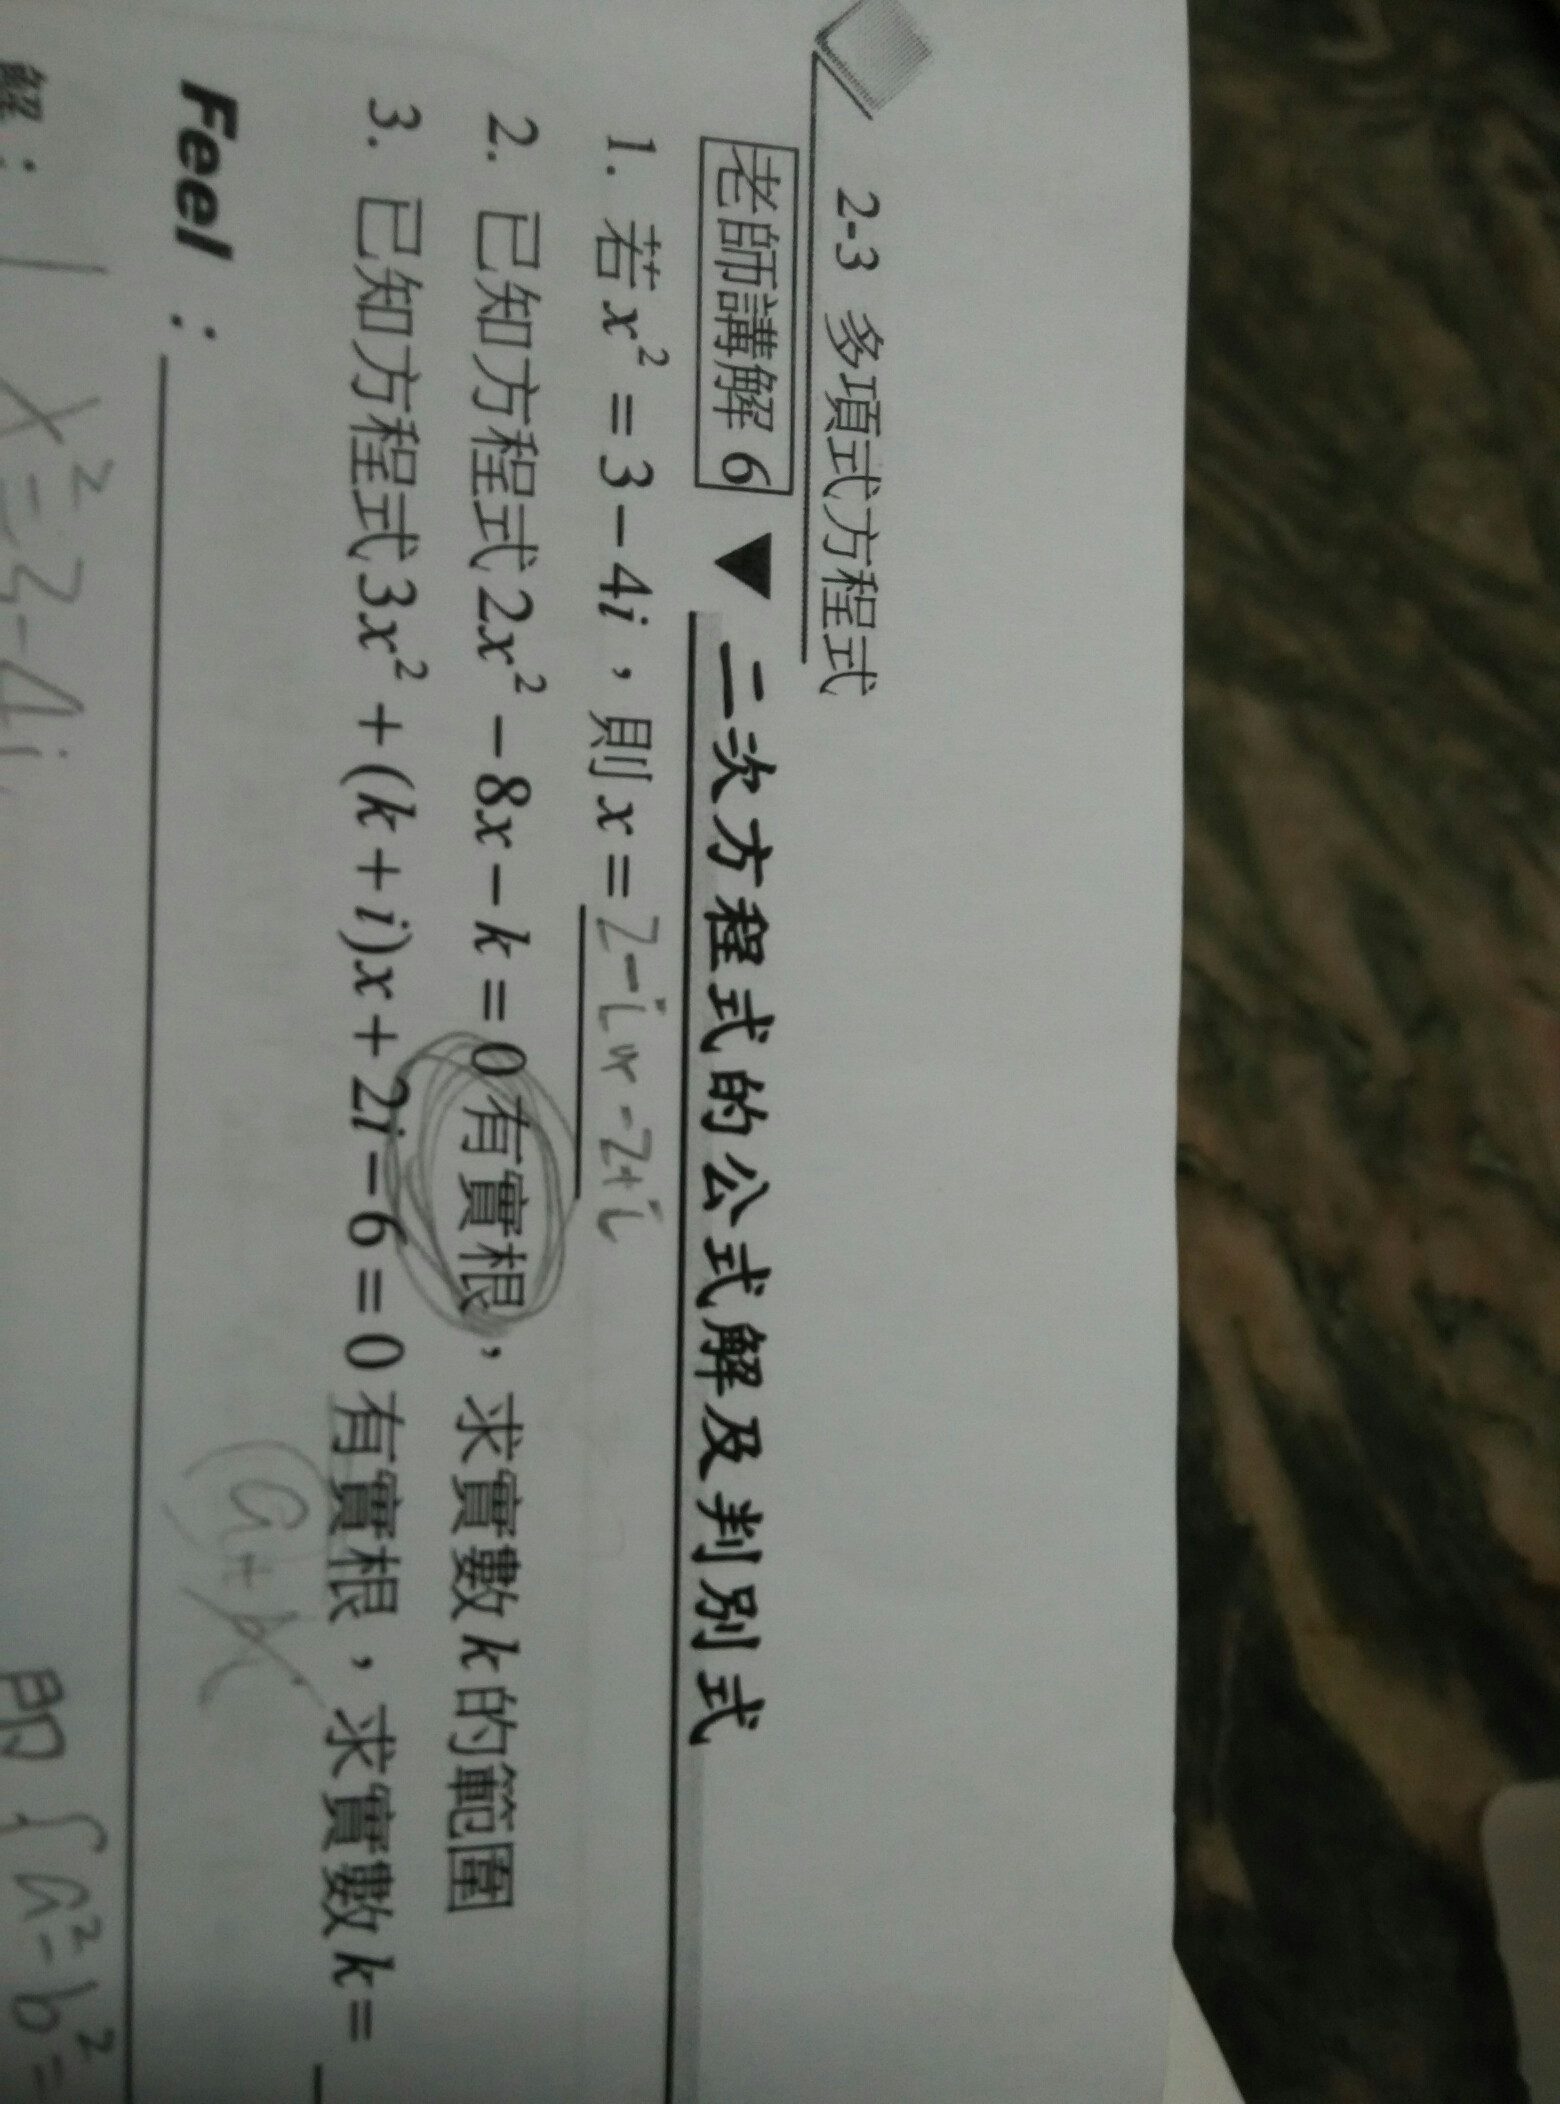 2-3 多項式方程式
老師講解 6 ▼ 二次方程式的公式解及判別式
1. 若 x² = 3 − 4i，則 x = 2-i or -2+i
2. 已知方程式 2x² − 8x − k = 0 有實根，求實數 k 的範圍
3. 已知方程式 3x² + (k + i)x + 2i − 6 = 0 有實根，求實數 k =
a+b
Feel：
解： 1 x² = 3-4i 即 { a²-b² =